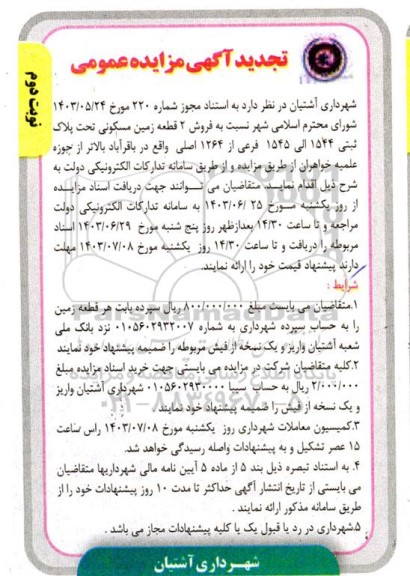 تجدید آگهی مزایده عمومی
نوبت دوم
شهرداری آشتیان در نظر دارد به استناد مجوز شماره ۲۲۰ مورخ ۱۴۰۳/۰۵/۲۴
شورای محترم اسلامی شهر نسبت به فروش ۲ قطعه زمین مسکونی تحت پلاک
ثبتی ۱۵۴۴ الی ۱۵۴۵ فرعی از ۱۲۶۴ اصلی واقع در باقرآباد بالاتر از حوزه
علمیه خواهران از طریق مزایده و از طریق سامانه تدارکات الکترونیکی دولت به
شرح ذیل اقدام نماید. متقاضیان می توانند جهت دریافت اسناد مزایده
از روز یکشنبه مورخ ۲۵ /۱۴۰۳/۰۶ به سامانه تدارکات الکترونیکی دولت
مراجعه و تا ساعت ۱۴/۳۰ بعدازظهر روز پنج شنبه مورخ ۱۴۰۳/۰۶/۲۹ اسناد
مربوطه را دریافت و تا ساعت ۱۴/۳۰ روز یکشنبه مورخ ۱۴۰۳/۰۷/۰۸ مهلت
دارند پیشنهاد قیمت خود را ارائه نمایند.
شرایط :
۱.متقاضیان می بایست مبلغ ۸۰۰/۰۰۰/۰۰۰ ریال سپرده بابت هر قطعه زمین
را به حساب سپرده شهرداری به شماره ۰۱۰۵۶۰۲۹۳۲۰۰۷ نزد بانک ملی
شعبه آشتیان واریز و یک نسخه از فیش مربوطه را ضمیمه پیشنهاد خود نمایند
۲.کلیه متقاضیان شرکت در مزایده می بایستی جهت خرید اسناد مزایده مبلغ
۲/۰۰۰/۰۰۰ ریال به حساب سیبا ۰۱۰۵۶۰۲۹۳۰۰۰۰ شهرداری آشتیان واریز
و یک نسخه از فیش را ضمیمه پیشنهاد خود نمایند.
۳.کمیسیون معاملات شهرداری روز یکشنبه مورخ ۱۴۰۳/۰۷/۰۸ راس ساعت
۱۵ عصر تشکیل و به پیشنهادات واصله رسیدگی خواهد شد.
۴. به استناد تبصره ذیل بند ۵ از ماده ۵ آیین نامه مالی شهرداریها متقاضیان
می بایستی از تاریخ انتشار آگهی حداکثر تا مدت ۱۰ روز پیشنهادات خود را از
طریق سامانه مذکور ارائه نمایند .
۵.شهرداری در رد یا قبول یک یا کلیه پیشنهادات مجاز می باشد .
شهرداری آشتیان